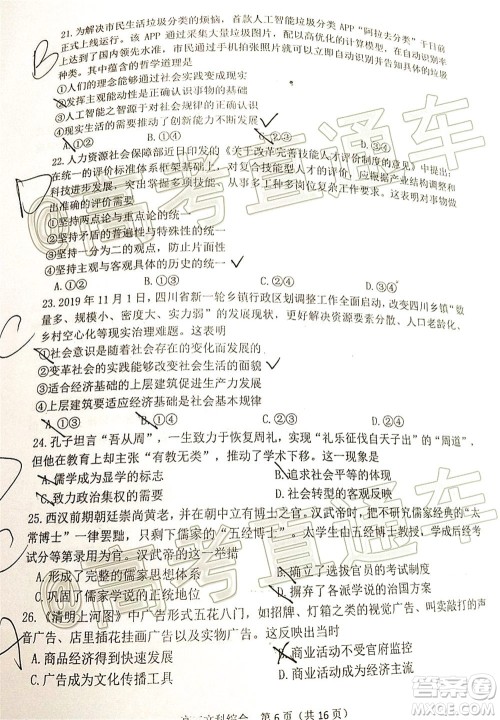 21.为解决市民生活垃圾分类的烦恼，首款人工智能垃圾分类 APP“阿拉去分类”于日前
正式上线运行。该 APP 通过采集大量垃圾图片，配以高优化的计算模型，在自动识别率
上达到了国内领先水准，市民通过手机拍张照片就可以自动识别并告知具体的垃圾
种类。其中蕴含的哲学道理是
①人们的理念能够通过社会实践变成现实
②发挥主观能动性是正确认识事物的基础
③人工智能之智源于对事物的正确认识
④现实生活的需要推动了创新能力不断发展
A.①② B.①④ C.②③ D.③④
22.人力资源社会保障部近日印发的《关于改革完善技能人才评价制度的意见》中提出：
在统一的评价标准体系框架基础上，对复合技能型人才的评价，应根据产业结构调整和
科技进步发展，突出掌握多项技能、从事多工种多岗位复杂工作要求。这种对事物作
出准确的评价需要
①坚持两点论与重点论的统一
②坚持矛盾的普遍性与特殊性的统一
③坚持一分为二的观点，防止片面性
④坚持主观与客观具体的历史的统一
A.①② B.①③ C.②④ D.③④
23.2019 年 11 月 1 日，四川省新一轮乡镇行政区划调整工作全面启动，改变四川乡镇“数
量多、规模小、密度大、实力弱”的发展现状，更好解决资源要素分散、人口老龄化、
乡村空心化等现实治理难题。这表明
①社会意识是随着社会存在的变化发展而变化发展的
②变革社会的实践能够促进社会的发展
③适合经济基础的上层建筑推动经济发展
④上层建筑要适应经济基础是社会基本规律
A.①② B.①④ C.②③ D.③④
24.孔子坦言“吾从周”，竭力维护周礼，实现“礼乐征伐自天子出”的“周道”，
但他在教育上却主张“有教无类”。这一现象是
A.儒学成为显学的标志 B.追求社会平等的体现
C.致力政治集权的需要 D.顺应时代发展的表现
25.西汉前期朝廷崇尚黄老，并在朝中立有多博士之官。汉武帝时，除儒家经学以外的“太
常博士”一律罢黜，只剩下儒家的“五经博士”。太学生由五经博士任教，岁终进行考
试分等录用。汉武帝的做法
A.形成了完整的儒家思想 B.确立了选拔官员的考试制度
C.巩固了儒家学说的正统地位 D.摒弃了先秦诸学派的治国方案
26.《清明上河图》中广告形式五花八门，如招牌、灯箱之类的视觉广告、叫卖敲打的声
音广告、店里插花挂画广告以及文化娱乐的实物广告等。这一现象反映了
A.商品经济的发展 B.商业活动不受官府监控
C.广告成为文化传播工具 D.商业活动突破空间限制
文科综合 第 6 页（共 16 页）
@高考直通车
@高考直通车
B
D
C
C
C
A